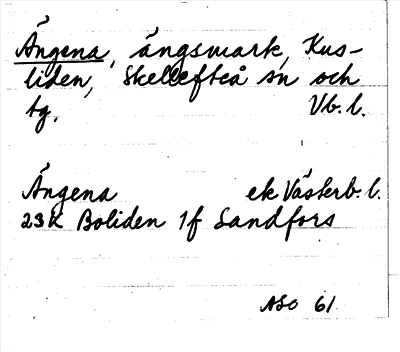 Ängena, ängsmark, Kus-
liden, Skellefteå sn och
tg. Vb. l.
Ängena ek Västerb. l.
23K Boliden 1f Sandfors
ASO 61